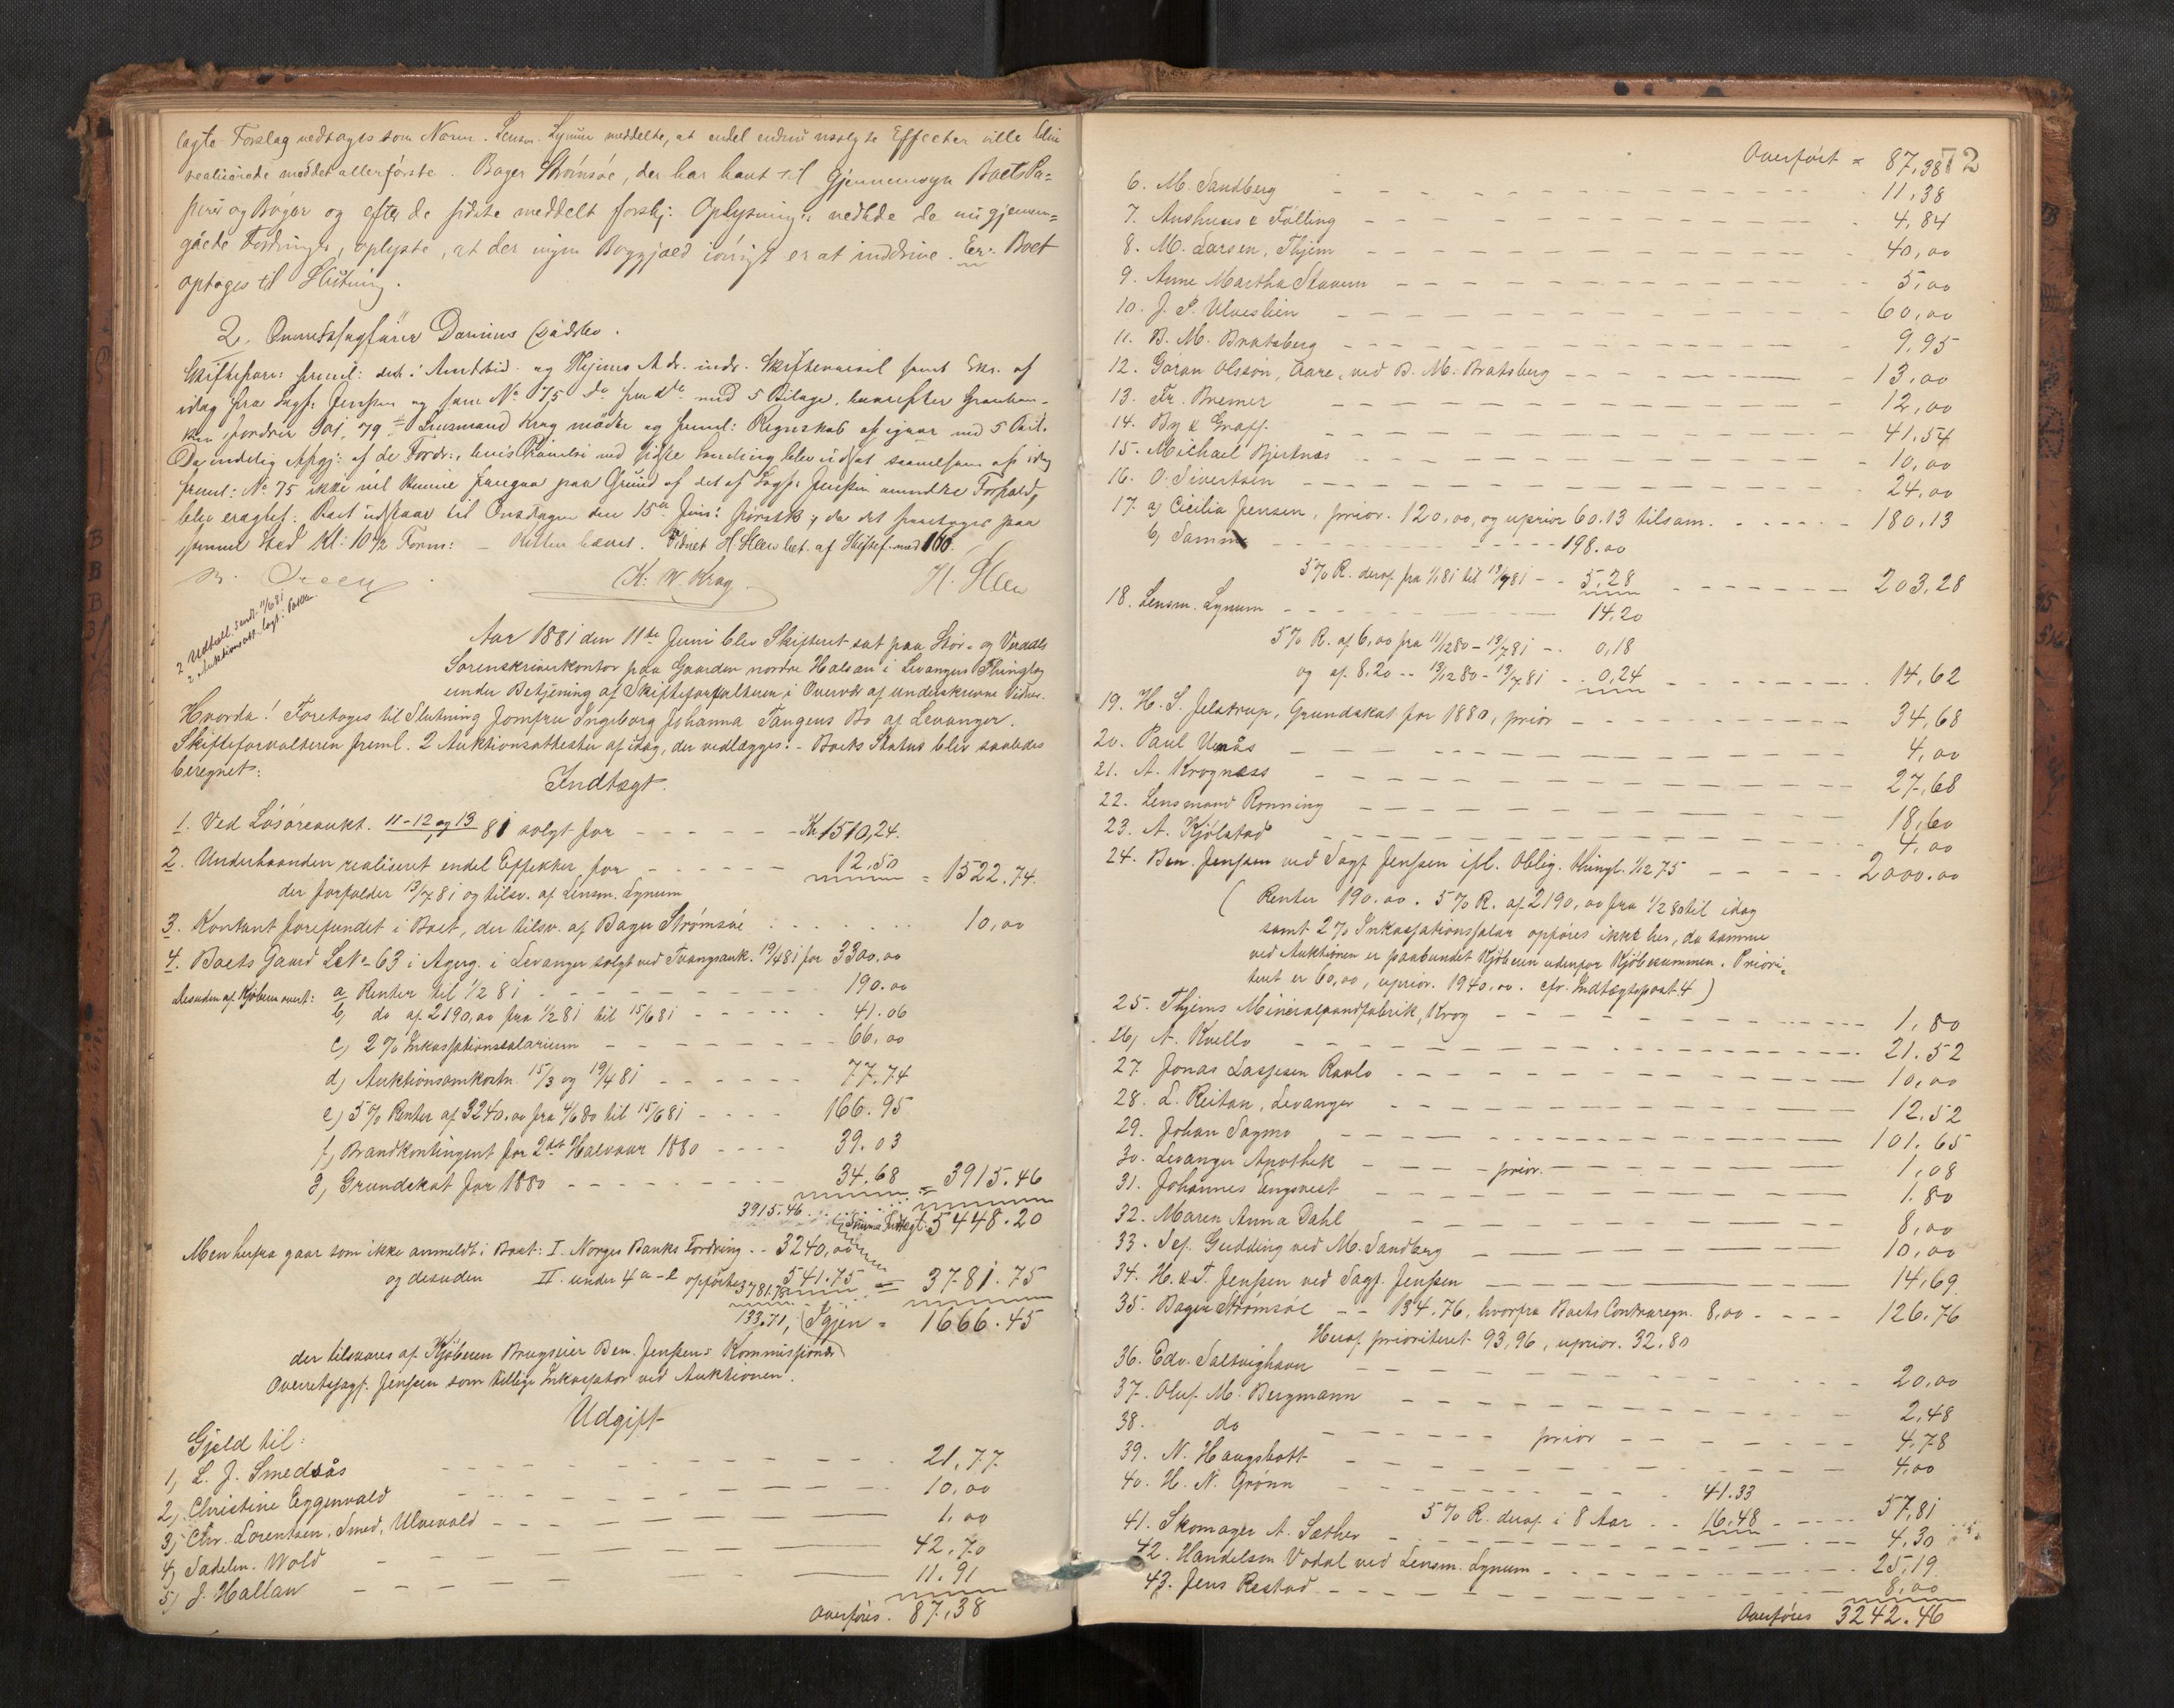 lagte Forslag vedtoges som Norm. Lensm. Lynum meddelte, at endel endnu usolgte Effecter ville blive
realiserede med det allerførste. Bager Strømsøe, der har havt til Gjennemsyn Boets Pa=
pirer og Bøger og efter de sidste meddelt forskj: Oplysninger vedkde de nu gjennem=
gåede Fordringer, oplyste, at der ingen Boggjæld iøvrigt er at inddrive. Er: Boet
optages til Slutning.
2. Overretssagfører Darius Bo.
Skifteforv: freml: det i Amtstid. og Adr. indr. Skiftevarsel samt Skr. af
idag fra Sagf. Jenssen og som No 75 do fra med 5 Bilage, hvorefter
fordrer 79 Lensmand Krag mødte og freml: Regnskab af igaar med 5 Bil.
Da endelig Afgj: af de Fordr:, hvis ved sidste Samling blev udsat saavelsom af idag
freml: No 75 ikke vil kunne foregaa paa Grund af det af Sagf. Jenssen anmeldte Forfald,
blev eragtet: Boet udstaar til Onsdagen den 15de Juni førstk; da det foretages paa
samme Sted Kl: 10 1/2 Form: – Retten hævet. Vidnet H Steen bet. af Skiftef. med 160.
K. W. Krag H. Steen
2 Udskr. sendt 11/6 81
2 Auktionsatt. lagt i
Aar 1881 den 11te Juni blev Skifteret sat paa Stör- og Verdals
Sorenskriverkontor paa Gaarden nordre Halsan i Levangers Thinglag
under Betjening af Skifteforvalteren i Overvær af underskrevne Vidner.
Hvorda! Foretoges til Slutning Jomfru Ingeborg Johanna Tangens Bo af Levanger.
Skifteforvalteren freml. 2 Auktionsattester af idag, der vedlægges. – Boets Status blev saaledes
beregnet:
Indtægt.
1. Ved Løsøreaukt. 11-12 og 13 81 solgt for - - - - - - Kr 1510,24.
2. Underhaanden realiseret endel Effekter for - - - - - 12.50 = 1522.74.
der forfalder 13/7 81 og tilsv. af Lensm. Lynum
3. Kontant forefundet i Boet, der tilsv. af Bager Strømsöe . . . . . . 10,00
4. Boets Gaard LNo 63 i Agerg. i Levanger solgt ved Tvangsauk. 19/4 81 for 3300,00
desuden af Kjöberen overt: a Renter til 1/2 81 - - - - 190.00
b, do af 2190,00 fra 1/2 81 til 15/6 81 - - - - 41.06
c, 2% Inkassationssalarium - - - - 66,00
d, Auktionsomkostn. 15/3 og 19/4 81 - - - - 77.74
e) 5% Renter af 3240.00 fra 4/6 80 til 15/6 81 - - - - 166.95
f, Brandkontingent for 2det Halvaar 1880 - - - - 39.03
g, Grundskat for 1880 - - - - 34.68 = 3915.46
3915.46 Summa Indtægt: 5448.20
Men herfra gaar som ikke anmeldt i Boet: I. Norges Banks Fordring - - 3240,00
og desuden II. under 4 a-e opførte 541.75 = 3781.75
3781.75
133.71, Igjen = 1666.45
der tilsvares af Kjöberen Brugseier Ben. Jenssens Kommissionær
Overretssagf. Jenssen som tillige Inkassator ved Auktionen.
Udgift
Gjæld til:
1, L. J. Smedsås - - - - 21,77
2, Christine Eggenvald - - - - 10,00
3, Chr. Lorentsen, Smed, Ulvevald - - - - 1,00
4, Sadelm. Wold - - - - 42,70
5, J. Hallan - - - - 11.91
Overføres. 87,38
72
Overført = 87,38
6. M. Sandberg - - - - 11,38
7. Aushuus & Fölling - - - - 4,84
8. M. Larsen, Thjem - - - - 40,00
9. Anne Martha Stavem - - - - 5,00
10. J. P. Ulveslien - - - - 60,00
11. B. M. Bratsberg - - - - 9,95
12. Göran Olsson, Aare, ved B. M. Bratsberg - - - - 13,00
13. Fr. Bremer - - - - 12,00
14. By & Graff. - - - - 41,54
15. Michael Bjertnæs - - - - 10,00
16. O. Sivertsen - - - - 24,00
17. a, Cicilia Jensen, prior. 120,00, og uprior 60.13 tilsam. - - - - 180.13
b, Samme - - - - 198.00
5% R. deraf fra 1/1 81 til 13/7 81 - - 5,28 - - - - 203,28
18. Lensm. Lynum - - - - 14.20
5% R. af 6,00 fra 11/12 80 - 13/7 81 - . 0,18
og af 8.20 - - 13/12 80 - 13/7 81 - . 0,24 - - - - 14,62
19. H. S. Jelstrup, Grundskat for 1880, prior - - - - 34,68
20. Paul Unås - - - - 4,00
21. A. Krognæss - - - - 27,68
22. Lensmand Rönning - - - - 18,60
23. A. Kjölstad - - - - 4,00
24. Ben. Jenssen ved Sagf. Jenssen ifl. Oblig. thingl. 1/12 75 - - - - 2000.00
( Renter 190.00. 5% R. af 2190,00 fra 1/2 80 til idag
samt 2% Inkassationssalar opføres ikke her, da samme
ved Auktionen er paabundet Kjöberen udenfor Kjöbesummen. Priori=
teret er 60,00, uprior. 1940,00. cfr. Indtægtspost 4 )
25. Thjems Mineralvandfabrik, Krog - - - - 1,80
26, A. Kvello - - - - 21.52
27. Jonas Lassesen Ravlo - - - - 10,00
28. L. Reitan, Levanger - - - - 12.52
29. Johan Sagmo - - - - 101.65
30. Levanger Apothek - - - - prior. - - - - 1,08
31. Johannes Engsvest - - - - 1.80
32. Maren Anna Dahl - - - - 8,00
33. Sef. Gudding ved M. Sandberg - - - - 10,00
34. H. & T. Jenssen ved Sagf. Jenssen - - - - 14,69
35. Bager Strømsöe - - 134.76, hvorfra Boets Contraregn. 8,00 - - - - 126.76
Heraf prioriteret 93,96, uprior. 32.80
36. Edv. Saltvighavn - - - - 20,00
37. Oluf M. Bergmann - - - - 2,48
38. do - - - - prior - - - - 4.78
39. N. Haugskott - - - - 4,00
40. H. N. Grönn - - - - 41.33
5% R. deraf i 8 Aar - . 16,48 - - - - 57,81
41. Skomager A. Sæther - - - - 4.30
42. Handelsm Vodal ved Lensm. Lynum - - - - 25,19
43. Jens Restad - - - - 8,00
Overføres 3242.46